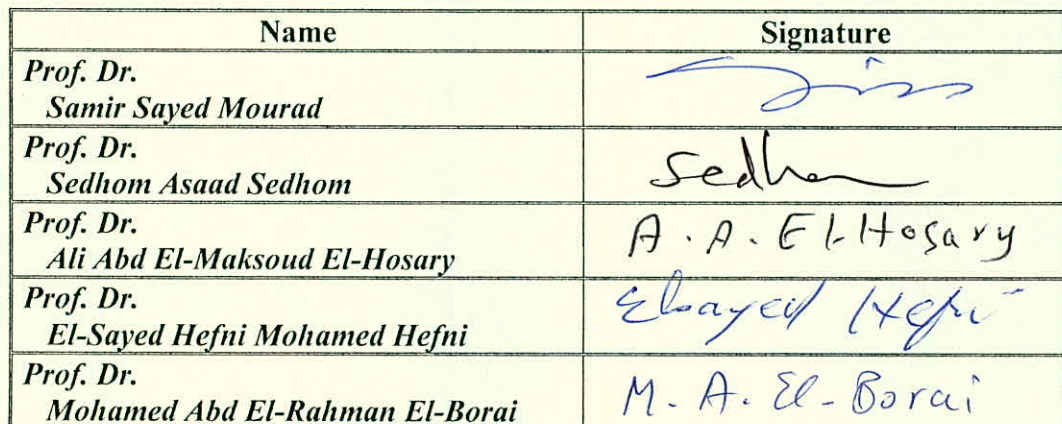 Name Signature
Prof. Dr.
Samir Sayed Mourad
Prof. Dr.
Sedhom Asaad Sedhom Sedhom
Prof. Dr.
Ali Abd El-Maksoud El-Hosary A. A. El-Hosary
Prof. Dr.
El-Sayed Hefni Mohamed Hefni Elsayed Hefni
Prof. Dr.
Mohamed Abd El-Rahman El-Borai M. A. El-Borai